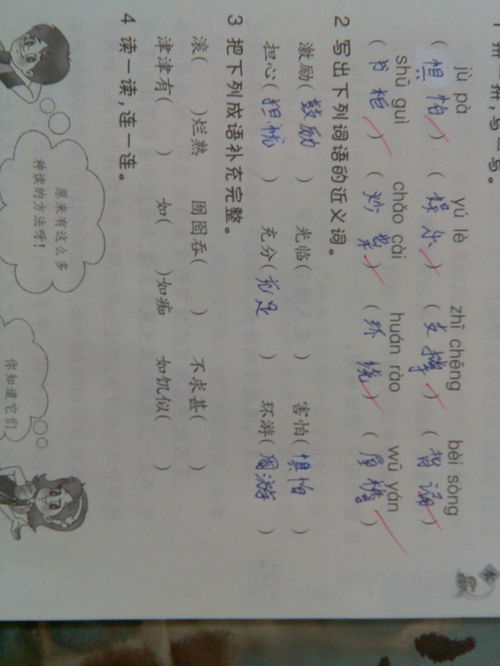 拼一拼，写一写。
jù pà yú lè zhī chēng bèi sòng
（惧怕）（娱乐）（支撑）（背诵）
shū guì chǎo cài huán rào wū yán
（书柜）（炒菜）（环绕）（屋檐）
2 写出下列词语的近义词。
激励（鼓励） 光临（ ） 害怕（惧怕）
担心（担忧） 充分（充足） 环游（周游）
3 把下列成语补充完整。
滚（ ）烂熟 囫囵吞（ ） 不求甚（ ）
津津有（ ） 如（ ）如痴 如饥似（ ）
4 读一读，连一连。
原来有这么多
种读的方法呀！
你知道它们